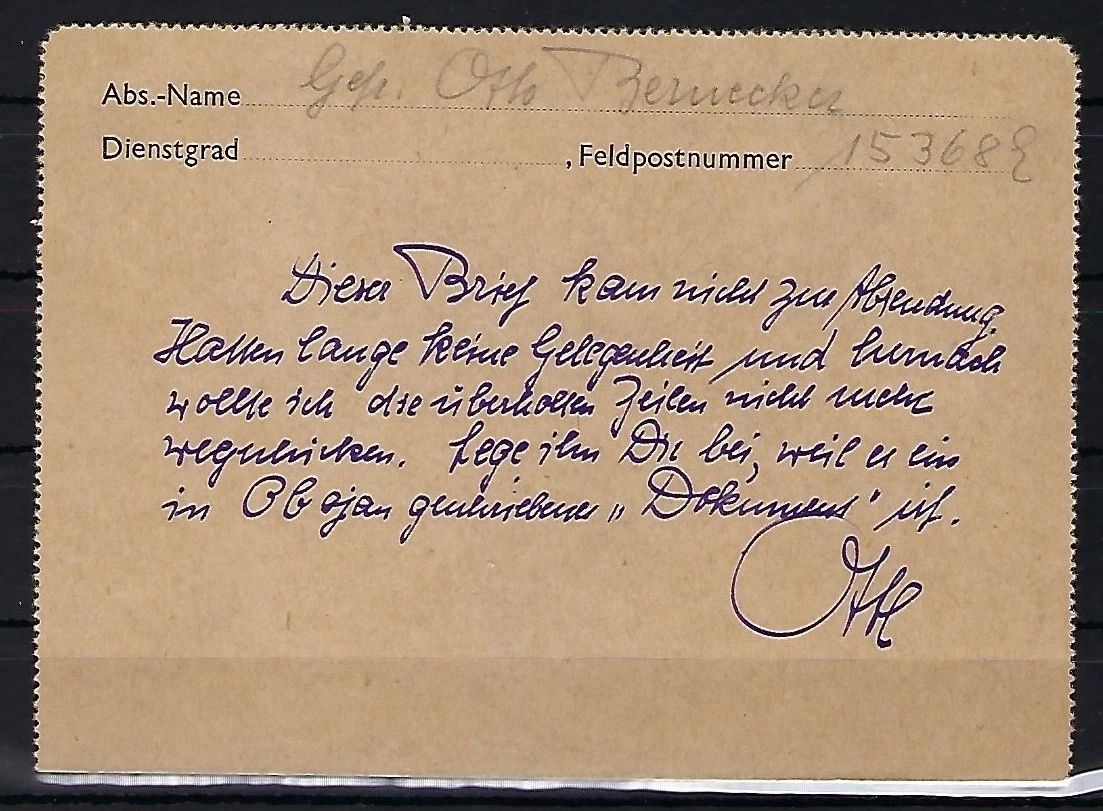 Abs.-Name Gefr. Otto Bernecker
Dienstgrad , Feldpostnummer 15368 E
Dieser Brief kam nicht zur Absendung.
Hatten lange keine Gelegenheit und hernach
wollte ich die überholten Zeilen nicht mehr
wegschicken. Lege ihn Dir bei, weil er ein
in Obojan geschriebenes „Dokument" ist.
Otto